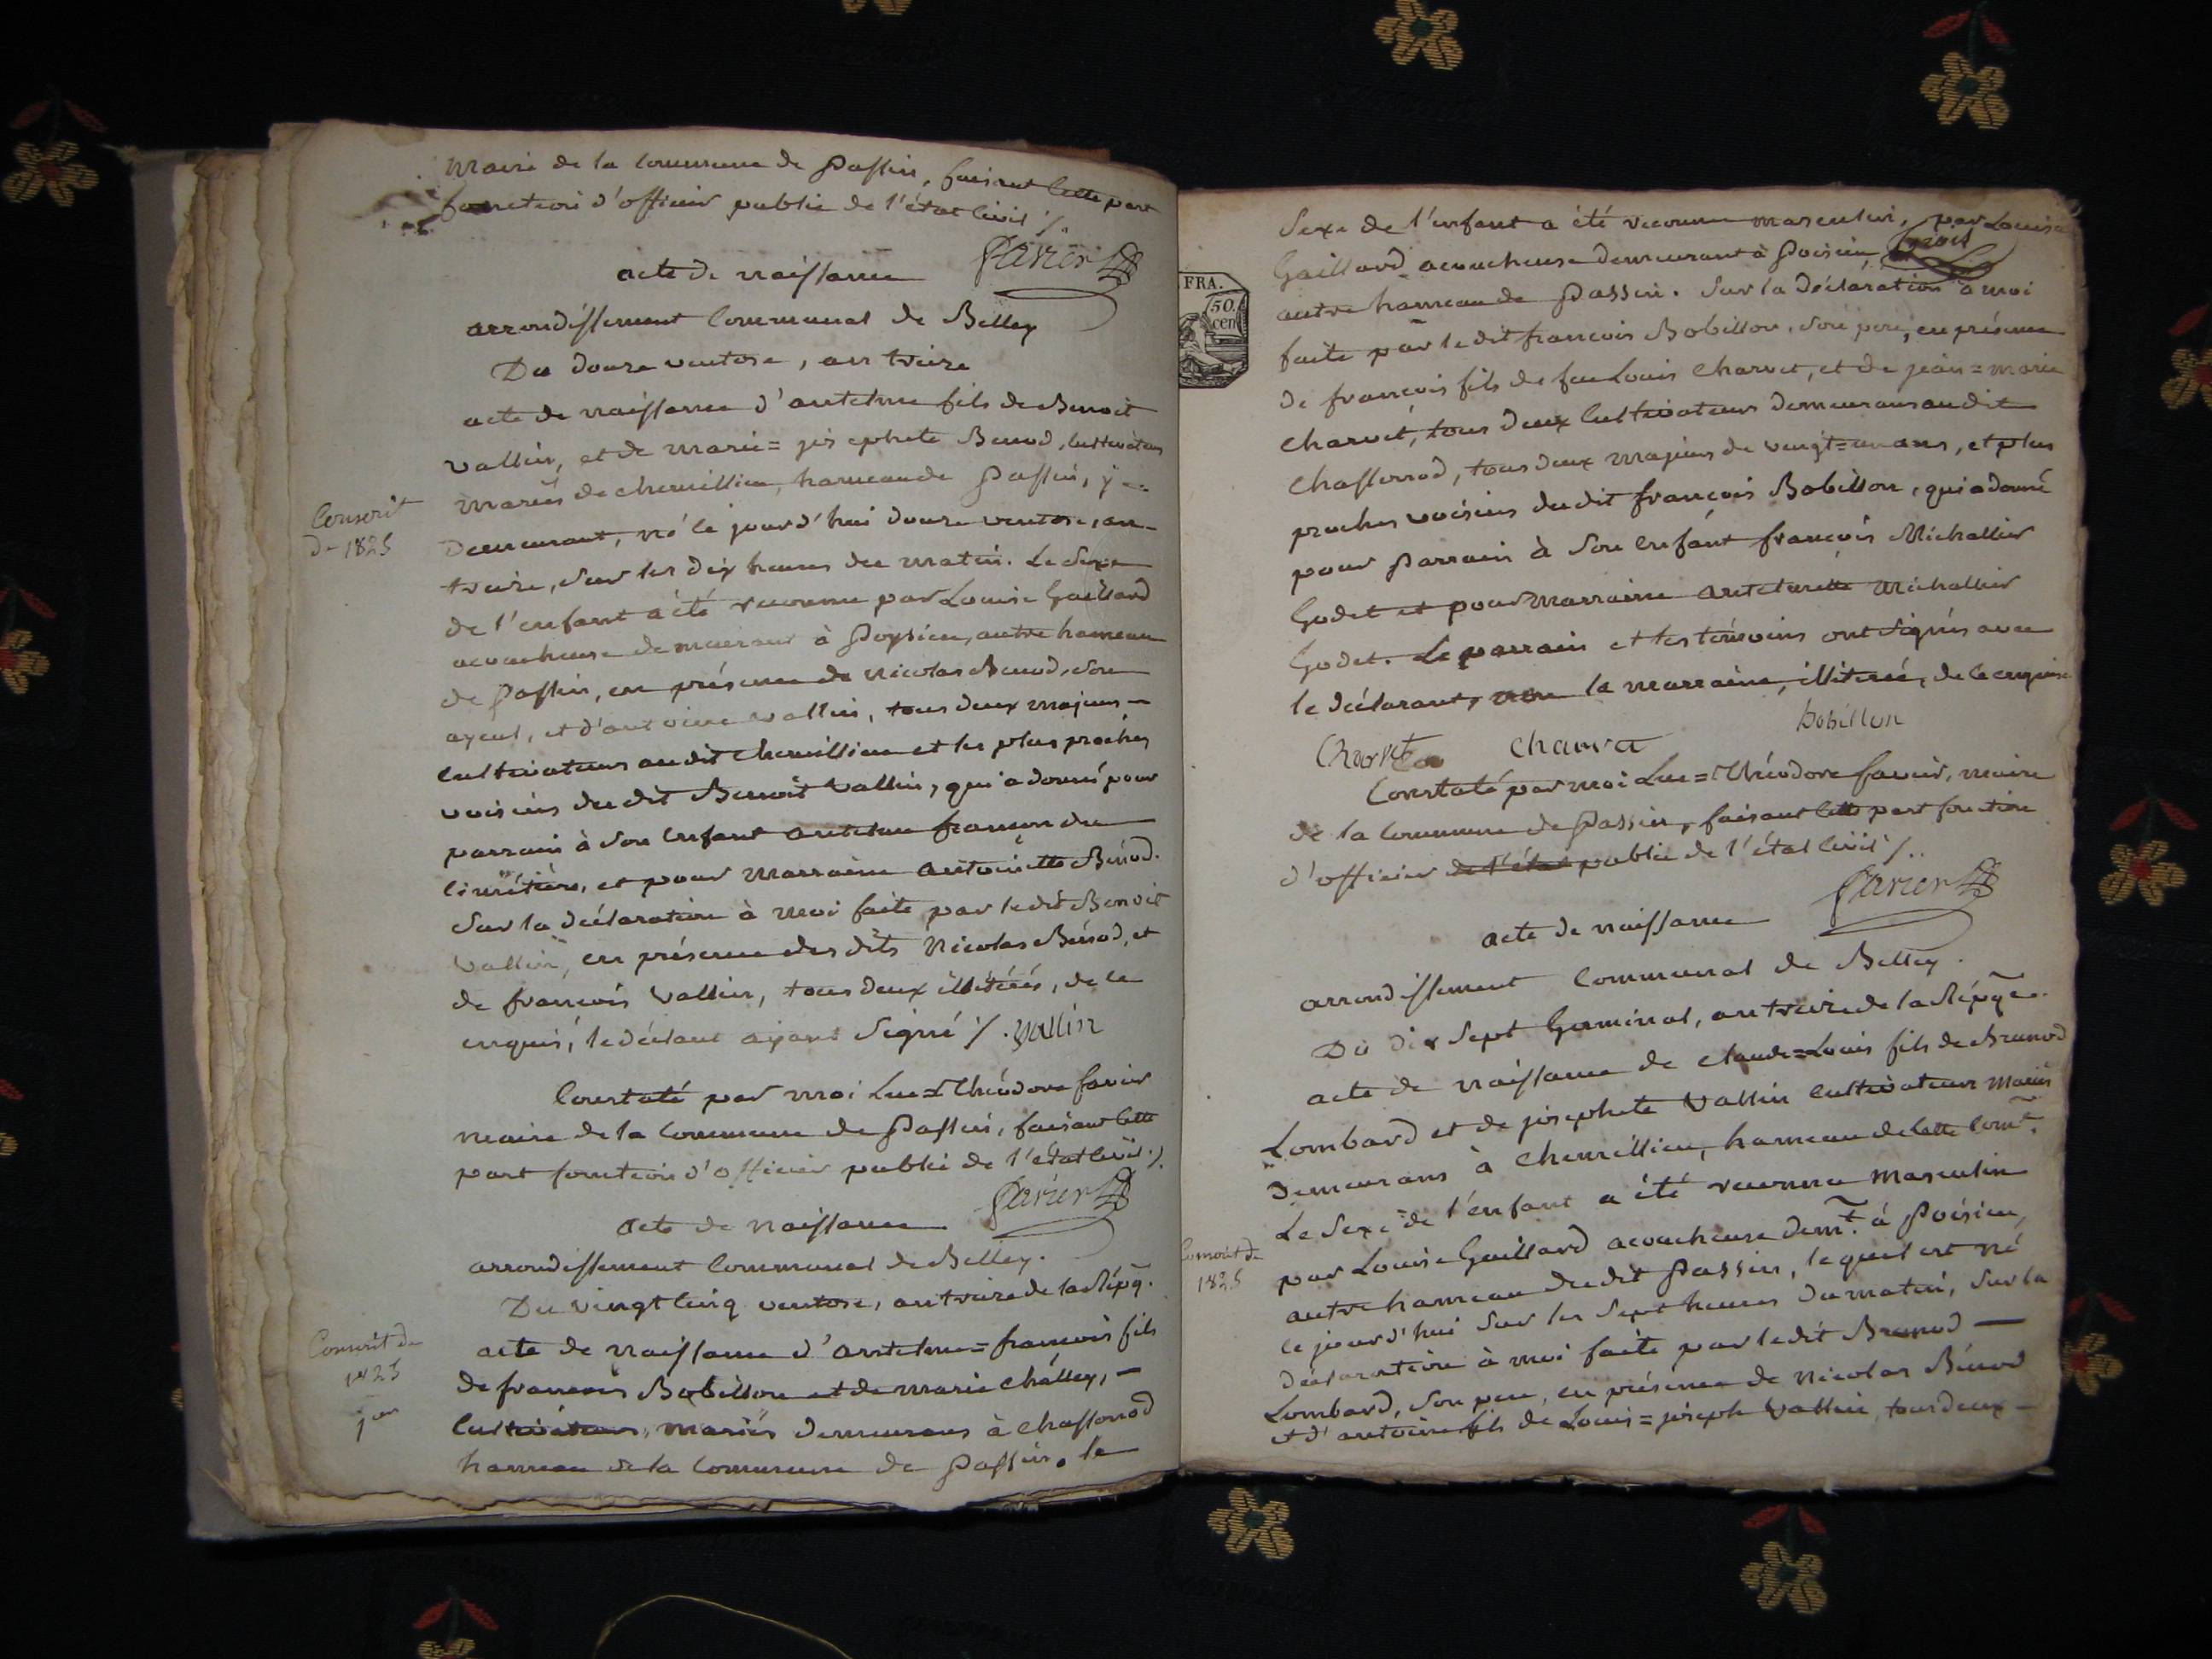 Maire de la Commune de Passin, faisant cette part
fonction d'officier public de l'état civil ./.
Favier
acte de naissance
arrondissement Communal de Belley
Du douze ventose, an treize
acte de naissance d'antelme fils de Benoit
vallin, et de marie= josephete Benod, cultivateurs
mariés de chemillieu, hameau de Passin, y
Conscrit
de 1825
demeurant, né le jourd'hui douze ventose, an
treize, sur les dix heures du matin. Le Sexe
de l'enfant a été reconnu par Louise Gaillard
acoucheuse demeurant à Poysieu, autre hameau
de Passin, en présence de nicolas Benod, son
ayeul, et d'antoine vallin, tous deux majeurs
cultivateurs audit chemillieu et les plus proches
voisins dudit Benoit Vallin, qui a donné pour
parrain à son enfant antelme françon du
cimétière, et pour Marraine antoinette Bénod.
Sur la déclaration à moi faite par ledit Benoit
Vallin, en présence des dits Nicolas Bénod, et
de francois Vallin, tous deux illitérés, de ce
enquis, le déclarant ayant Signé ./. vallin
Constaté par moi Luc=Théodore favier
maire de la Commune de Passin, faisant cette
part fonction d'officier public de l'état civil ./.
Favier
acte de naissance
arrondissement Communal de Belley.
Du vingt cinq ventose, an treize de la Répq.
Conscrit de
1825
acte de naissance d'antelme=francois fils
de francois Bobillon et de marie challey,
cultivateurs, mariés demeurans à chassonod
hameau de la Commune de Passin. le
FRA.
50.
cen
Sexe de l'enfant a été reconnu masculin, par Louise
Gaillard acoucheuse demeurant à Poisieu,
autre hameau de Passin. Sur la déclaration à moi
faite par ledit francois Bobillon, son père, en présence
de françois fils de feu Louis Charvet, et de jean=marie
charvet, tous deux cultivateurs demeurans audit
chassonod, tous deux majeurs de vingt=un ans, et plus
proches voisins dudit françois Bobillon, qui a donné
pour Parrain à son enfant françois Michallier
Godet et pour Marraine antelmette Michallier
Godet. Le parrain et les témoins ont signés avec
le déclarant, non la marraine, illiterée, de ce enquise
bobillon
Charvet charvet
Constaté par moi Luc=Théodore favier, maire
de la Commune de Passin, faisant cette part fonction
d'officier de l'état public de l'état civil ./.
Favier
acte de naissance
arrondissement Communal de Belley.
Du dix sept Germinal, an treize de la Répqe.
acte de naissance de claude=Louis fils de Brunod
Lombard et de josephete Vallin cultivateurs mariés
demeurans à chemillieu, hameau de cette comne.
Le Sexe de l'enfant a été reconnu masculin
par Louise Gaillard acoucheuse demt. à Poisieu,
Conscrit de
1825
autre hameau dudit Passin, lequel est né
ce jourd'hui sur les Sept heures du matin, sur la
déclaration à moi faite par ledit Brunod
Lombard, son pere, en présence de nicolas Bénod
et d'antoine fils de Louis=joseph Vallin, tous deux